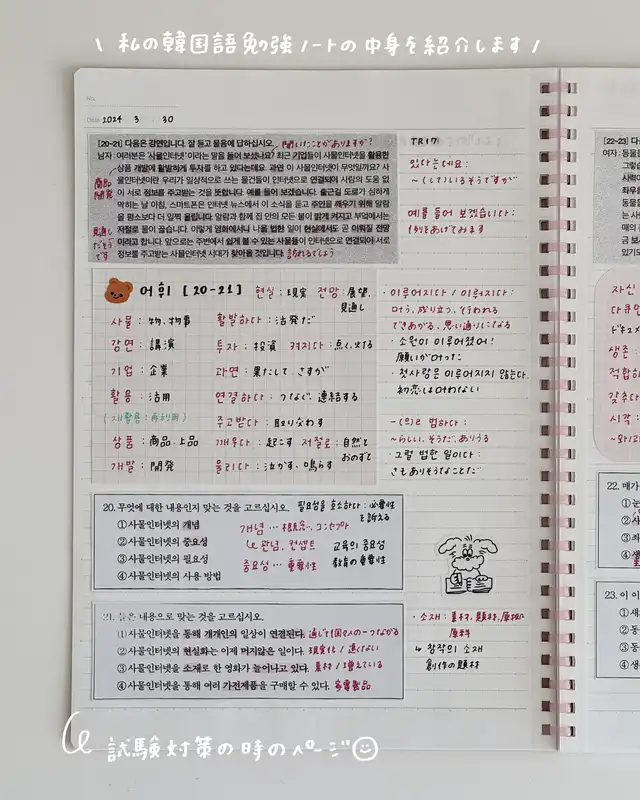 私の韓国語勉強ノートの中身を紹介します
No.
Date 2024 3 30
[20-21] 다음은 강연입니다. 잘 듣고 물음에 답하십시오.
聞いたことがありますか?
남자 : 여러분은 '사물인터넷'이라는 말을 들어 보셨나요? 최근 기업들이 사물인터넷을 활용한
상품 개발에 활발하게 투자를 하고 있다는데요. 과연 이 사물인터넷이 무엇일까요? 사
물인터넷이란 우리가 일상적으로 쓰는 물건들이 인터넷으로 연결되어 사람의 도움 없
이 서로 정보를 주고받는 것을 뜻합니다. 예를 들어 보겠습니다. 출근길 도로가 심하게
막히는 날 아침, 스마트폰은 인터넷 뉴스에서 이 소식을 듣고 주인을 깨우기 위해 알람
을 평소보다 더 일찍 울립니다. 알람과 함께 집 안의 모든 불이 밝게 켜지고 부엌에서는
저절로 물이 끓습니다. 이렇게 영화에서나 나올 법한 일이 현실에서도 곧 이뤄질 전망
이라고 합니다. 앞으로는 주변에서 쉽게 볼 수 있는 사물들이 인터넷으로 연결되어 서로
정보를 주고받는 사물인터넷 시대가 찾아올 것입니다.
訪れるでしょう
商品
開発
見通し
だそう
です
TR17
있다는데요:
~(して)いるそうですが
예를 들어 보겠습니다:
例をあげてみます
어휘 [20-21]
현실 : 現実 전망 : 展望,
見通し
사물 : 物、物事 활발하다 : 活発だ
강연 : 講演 투자 : 投資 켜지다 : 点く,灯る
기업 : 企業 과연 : 果たして さすが
활용 : 活用 연결하다 : つなぐ、連結する
(재활용 : 再利用) 주고받다 : 取り交わす
상품 : 商品・上品 깨우다 : 起こす 저절로 : 自然と
おのずと
개발 : 開発 울리다 : 泣かす、鳴らす
・이루어지다 / 이뤄지다 :
叶う,成り立つ,行われる
できあがる、思い通りになる
・소원이 이루어졌어!
願いが叶った
・첫사랑은 이루어지지 않는다.
初恋は叶わない
-(으)ㄹ 법하다 :
~らしい,そうだ,ありうる
・그럴 법한 일이다 :
さもありそうなことだ
20. 무엇에 대한 내용인지 맞는 것을 고르십시오.
필요성을 호소하다 : 必要性
を訴える
① 사물인터넷의 개념
개념 … 概念、コンセプト
② 사물인터넷의 중요성
관념, 컨셉트 교육의 중요성
③ 사물인터넷의 필요성
중요성 … 重要性 教育の重要性
④ 사물인터넷의 사용 방법
21. 들은 내용으로 맞는 것을 고르십시오.
① 사물인터넷을 통해 개개인의 일상이 연결된다.
② 사물인터넷의 현실화는 이제 머지않은 일이다. 現実化 / 遠くない
③ 사물인터넷을 소재로 한 영화가 늘어나고 있다. 素材 / 増えている
④ 사물인터넷을 통해 여러 가전제품을 구매할 수 있다. 家電製品
・소재 : 素材,題材,原材に
原料
↳ 창작의 소재
創作の題材
[22-23] 다
여자 : 동물들
그렇습
자신
다큐멘
ドキュメ
생존 :
적합하
갖추다
시각 :
22. 매가
①
②
③
④
23. 이 이
① 새
② 동
③ 동
④ 동
試験対策の時のページ